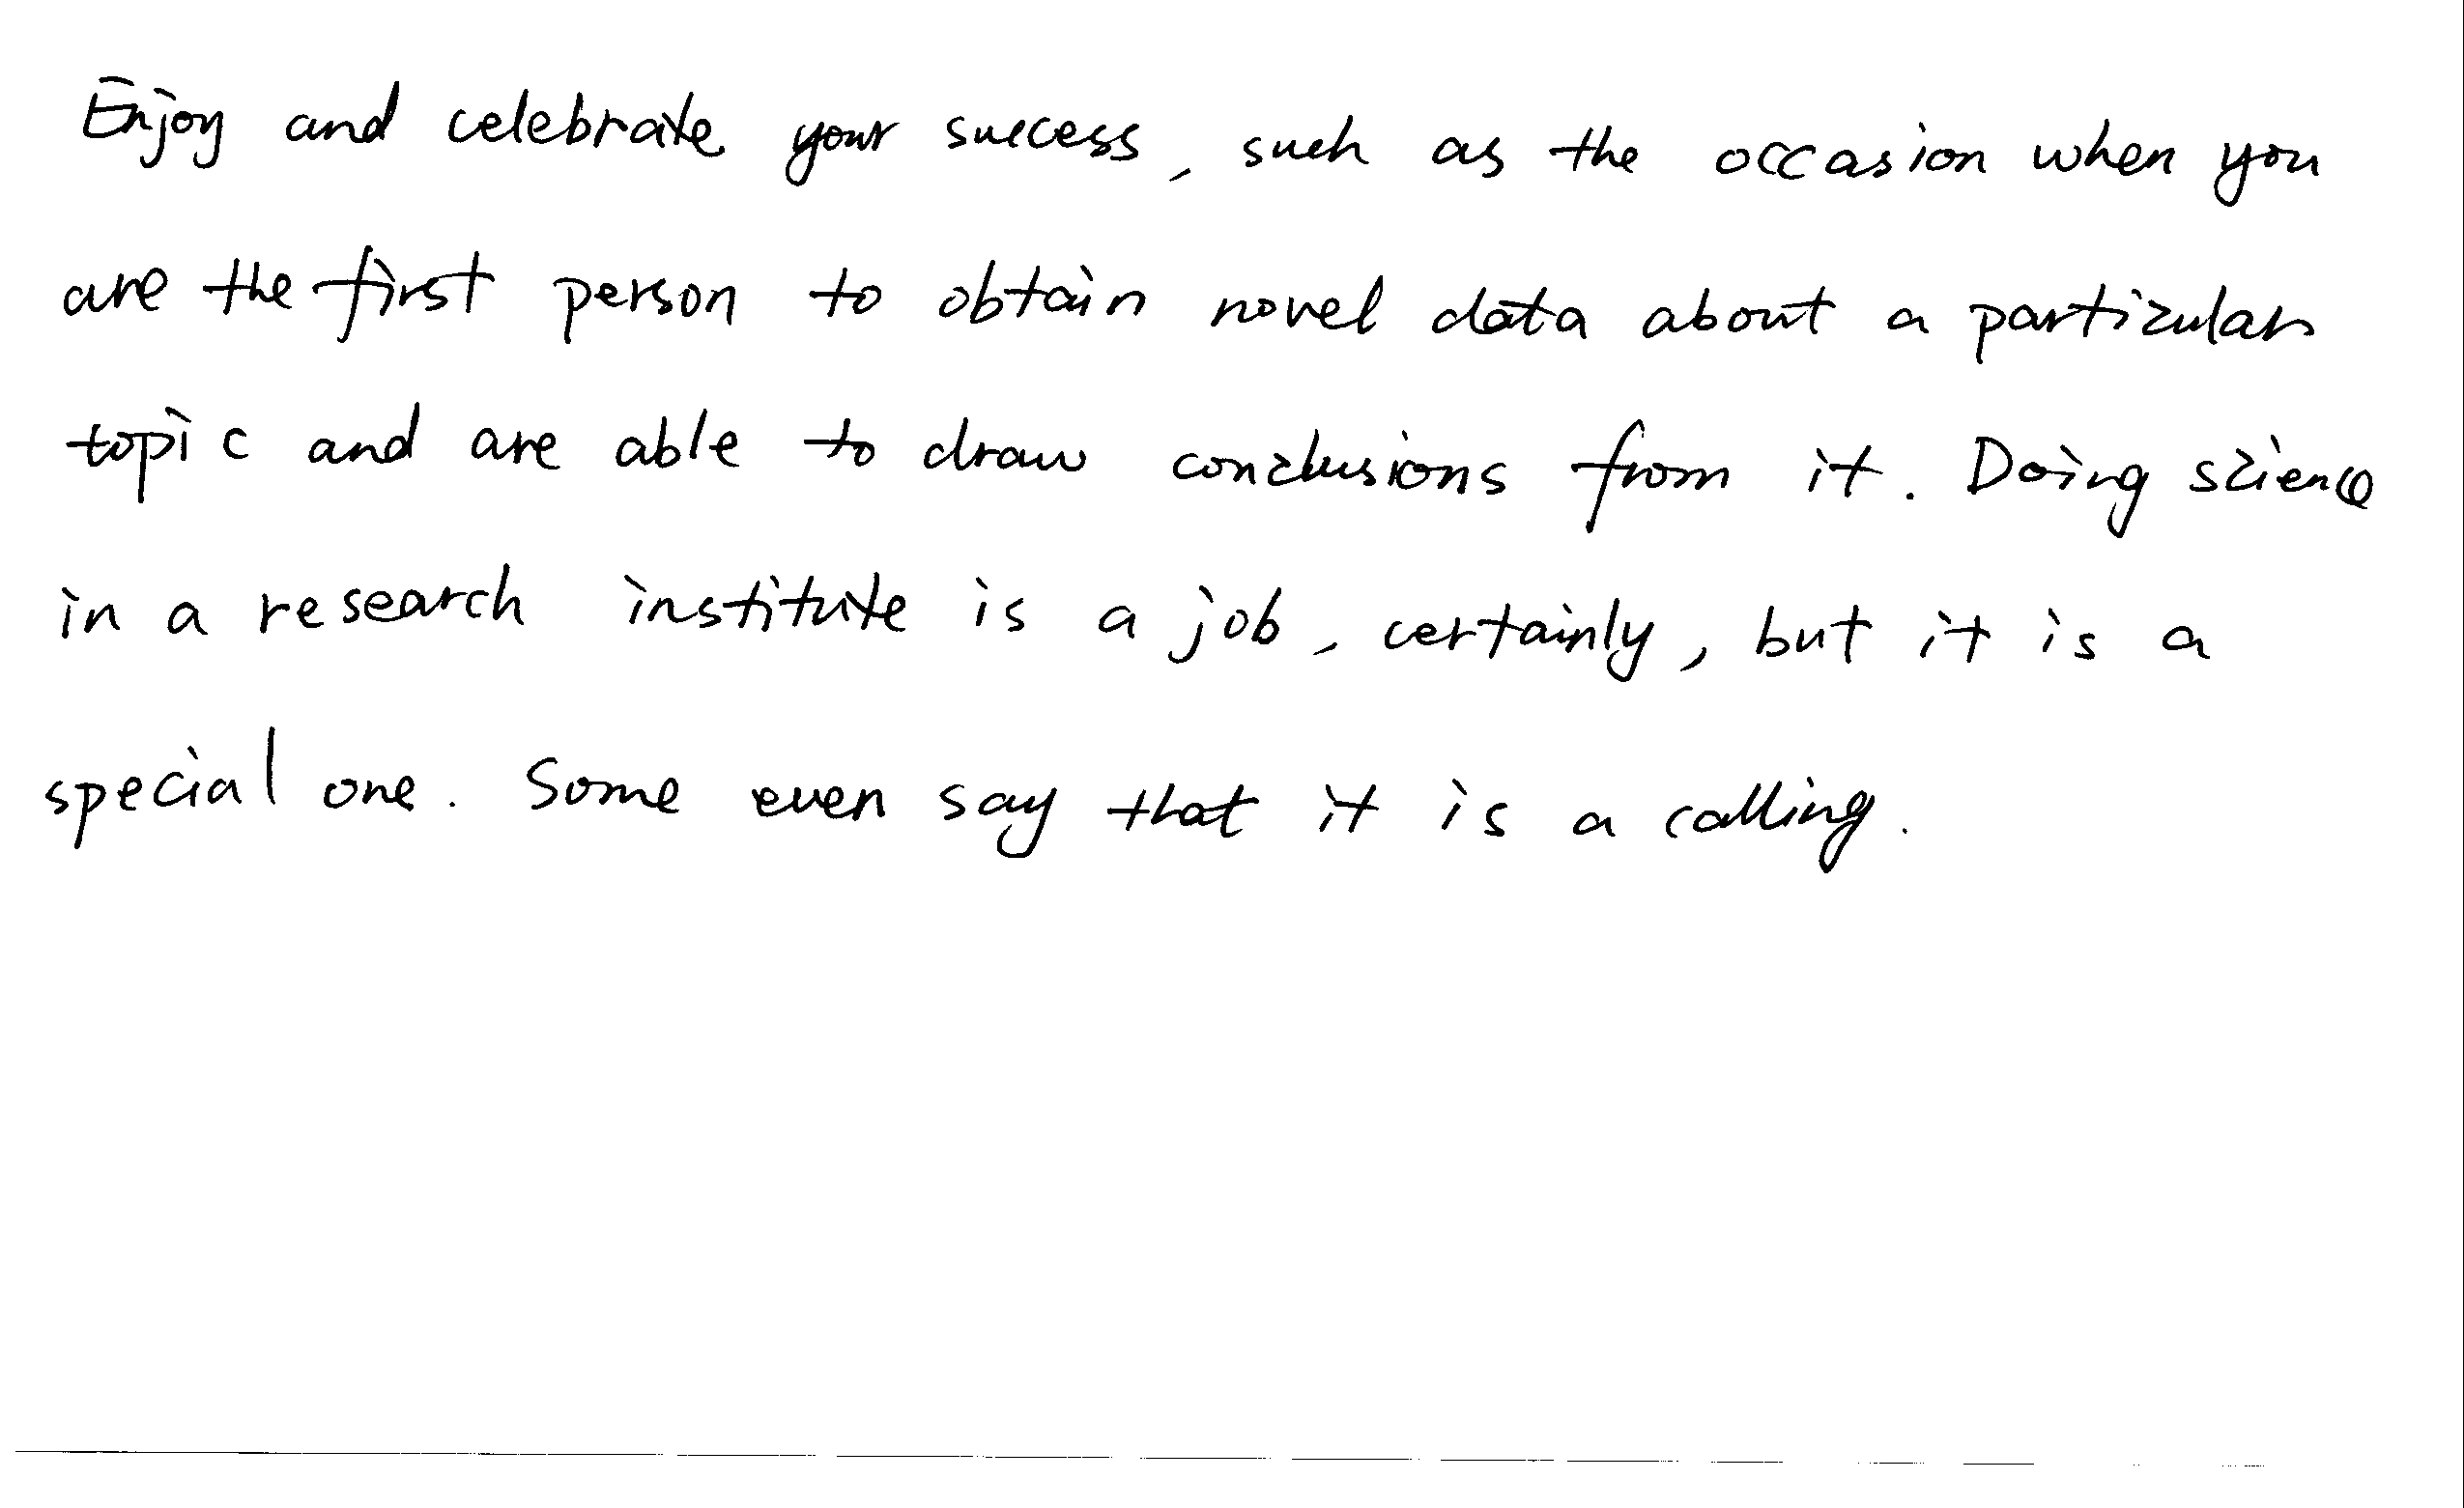 Enjoy and celebrate your success, such as the occasion when you
are the first person to obtain novel data about a particular
topic and are able to draw conclusions from it. Doing science
in a research institute is a job, certainly, but it is a
special one. Some even say that it is a calling.